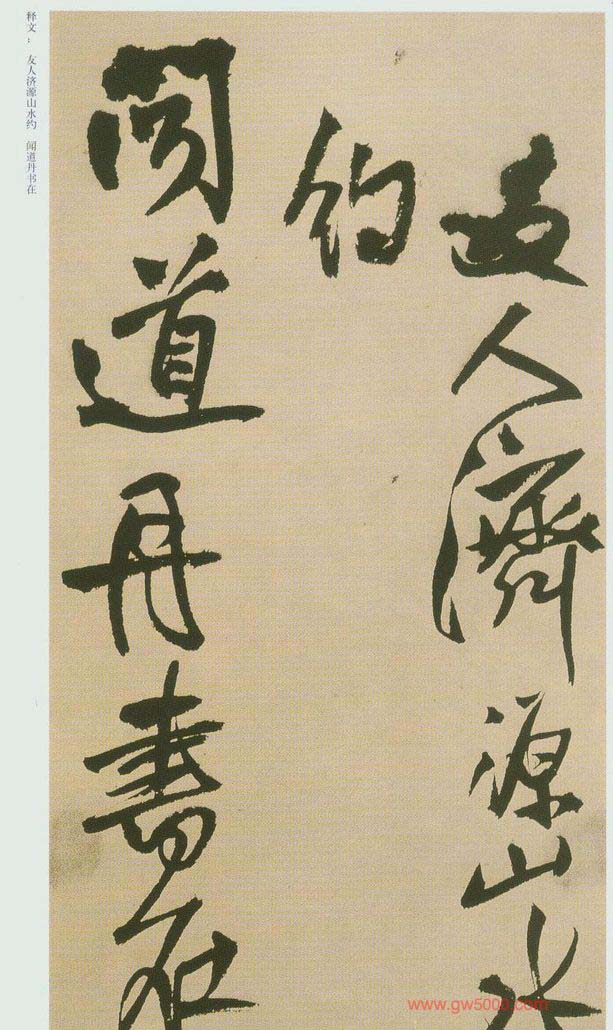 友人濟源山水
約
聞道丹書在
释文：友人济源山水约 闻道丹书在
www.gw5000.com